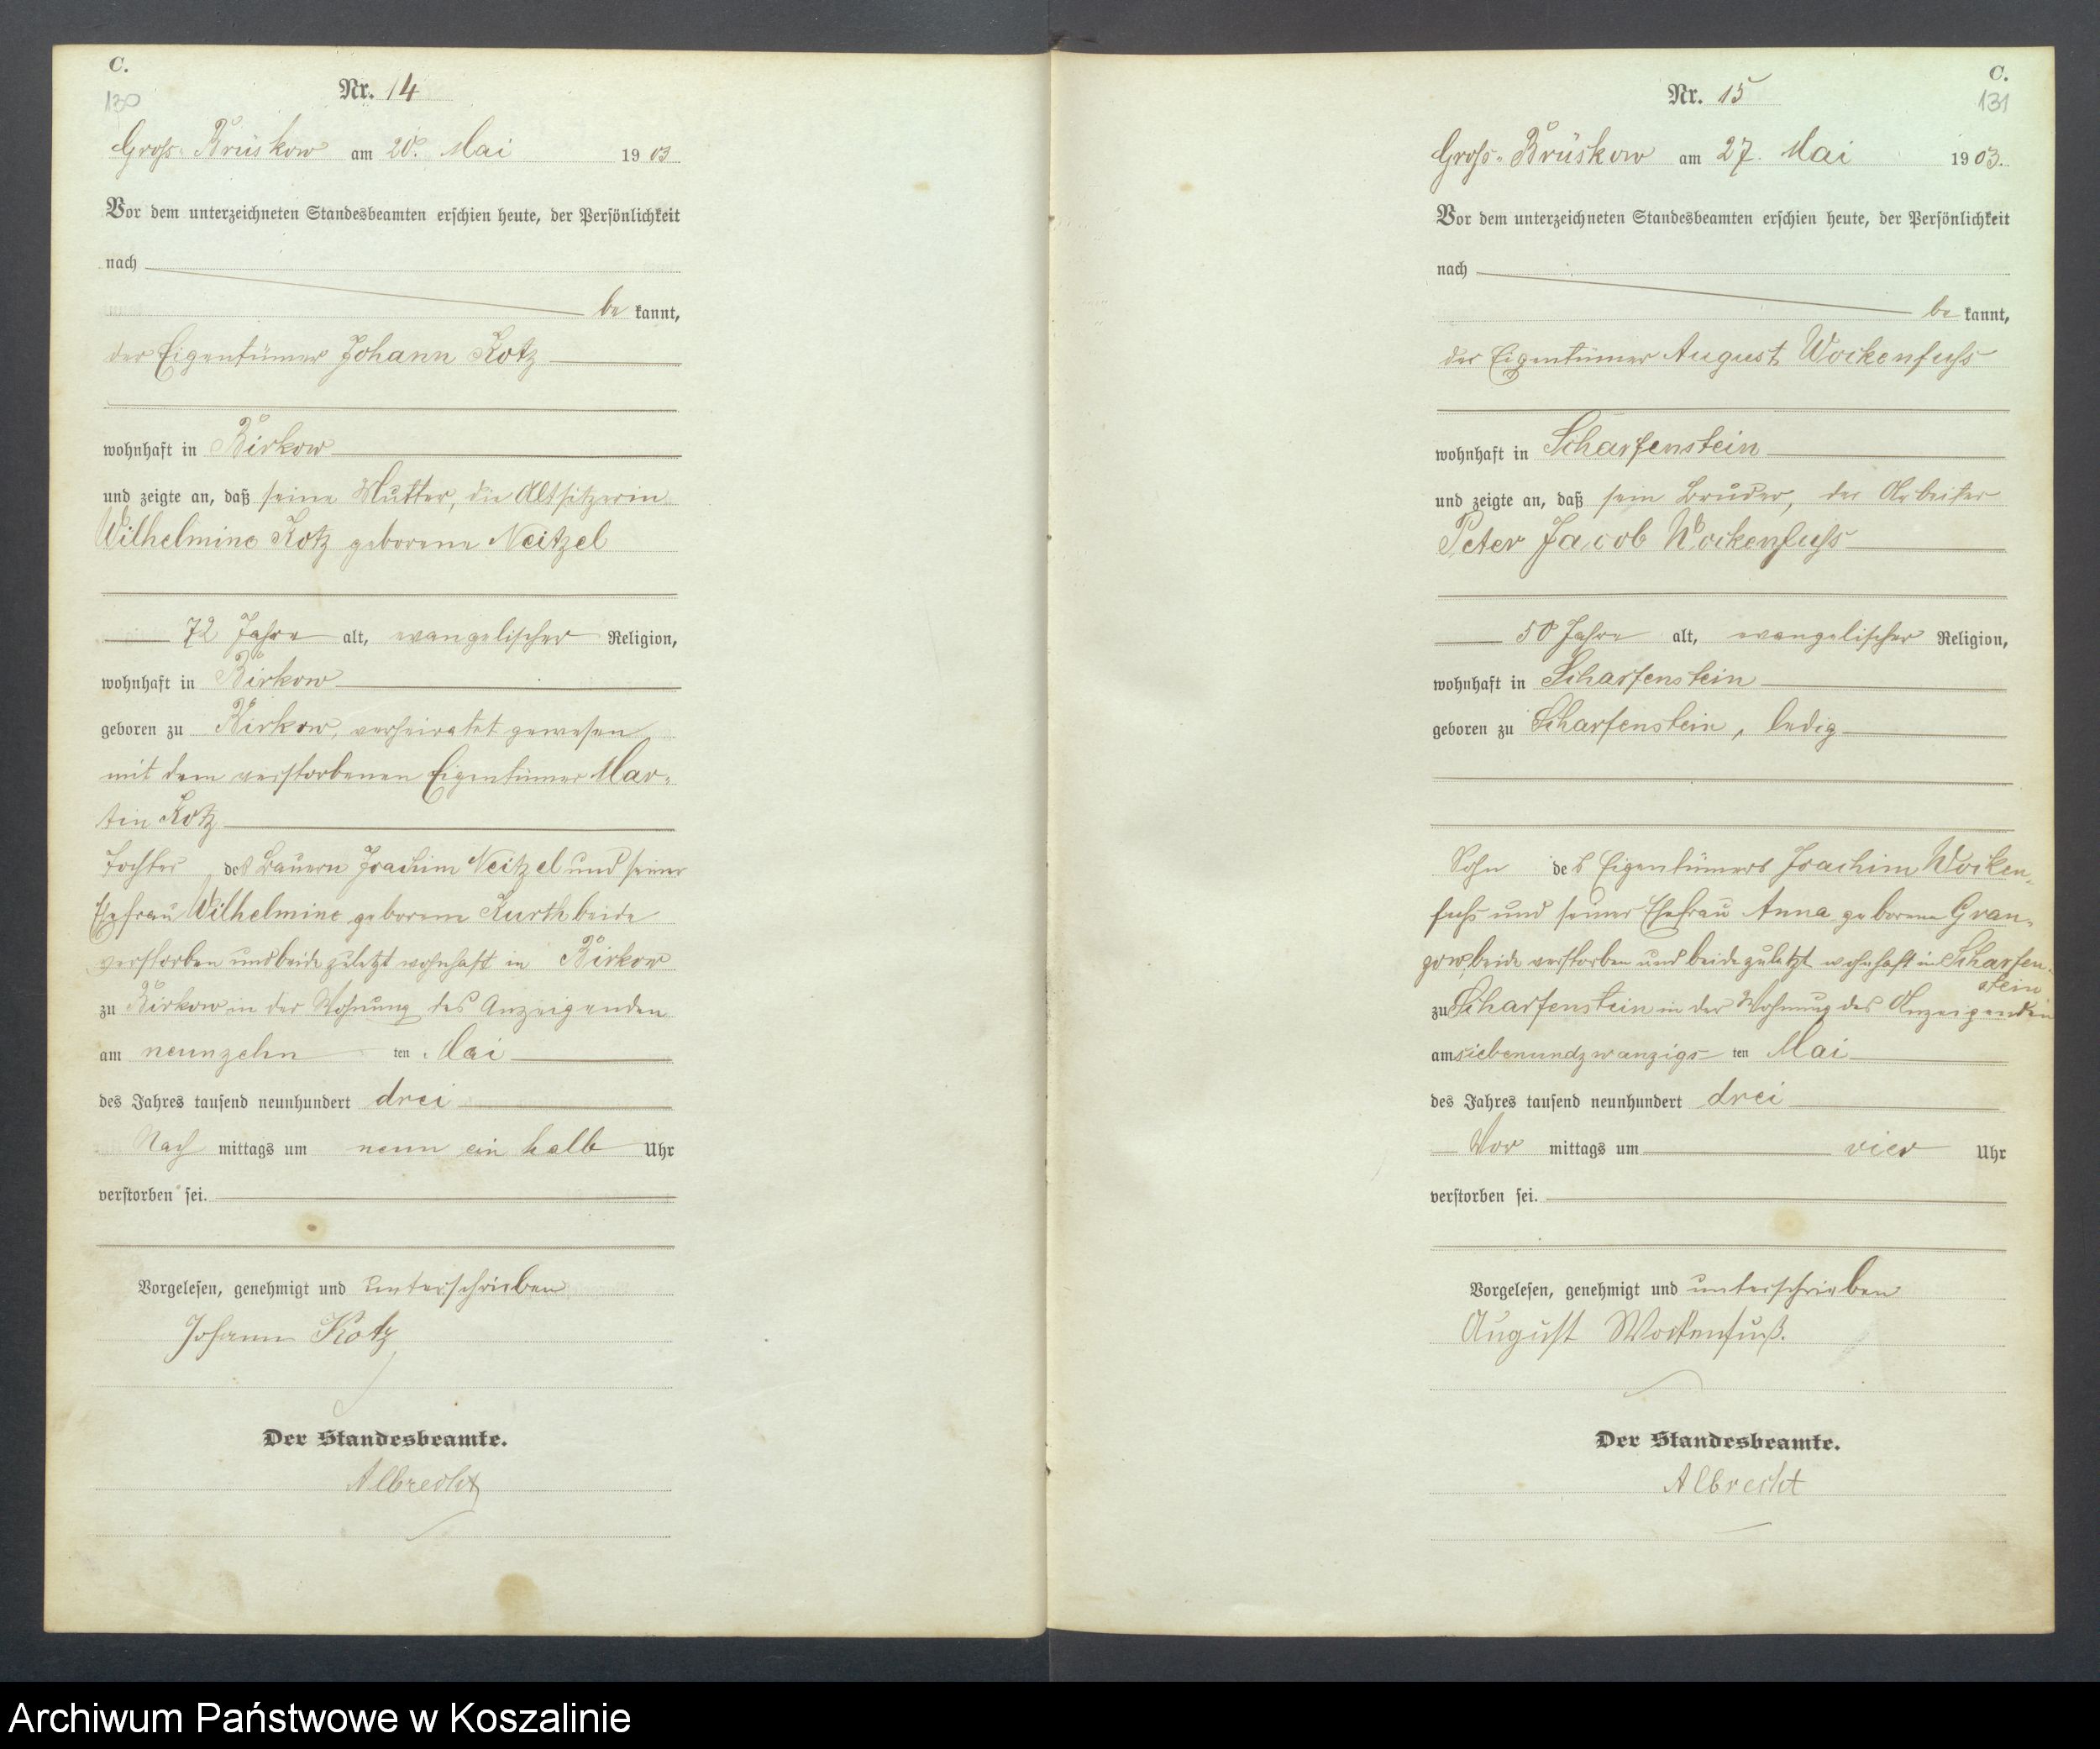 C.
130
Nr. 14
Groß-Brüskow am 20. Mai 1903
Vor dem unterzeichneten Standesbeamten erschien heute, der Persönlichkeit
nach
be kannt,
der Eigentümer Johann Kotz
wohnhaft in Birkow
und zeigte an, daß seine Mutter, die Altsitzerin
Wilhelmine Kotz geborene Neitzel
72 Jahre alt, evangelischer Religion,
wohnhaft in Birkow
geboren zu Birkow, verheiratet gewesen
mit dem verstorbenen Eigentümer Mar-
tin Kotz
Tochter des Bauern Joachim Neitzel und seiner
Ehefrau Wilhelmine geborene Kurth beide
verstorben und beide zuletzt wohnhaft in Birkow
zu Birkow in der Wohnung des Anzeigenden
am neunzehn ten Mai
des Jahres tausend neunhundert drei
Nach mittags um neun ein halb Uhr
verstorben sei.
Vorgelesen, genehmigt und unterschrieben
Johann Kotz
Der Standesbeamte.
Albrecht
C.
131
Nr. 15
Groß-Brüskow am 27. Mai 1903.
Vor dem unterzeichneten Standesbeamten erschien heute, der Persönlichkeit
nach
be kannt,
der Eigentümer August Wockenfuß
wohnhaft in Scharfenstein
und zeigte an, daß sein Bruder, der Arbeiter
Peter Jacob Wockenfuß
50 Jahre alt, evangelischer Religion,
wohnhaft in Scharfenstein
geboren zu Scharfenstein, ledig
Sohn des Eigentümers Joachim Wocken-
fuß und seiner Ehefrau Anna geborene Gran-
zow, beide verstorben und beide zuletzt wohnhaft in Scharfen-
stein
zu Scharfenstein in der Wohnung des Anzeigenden
am siebenundzwanzigs- ten Mai
des Jahres tausend neunhundert drei
Vor mittags um vier Uhr
verstorben sei.
Vorgelesen, genehmigt und unterschrieben
August Wockenfuß.
Der Standesbeamte.
Albrecht
Archiwum Państwowe w Koszalinie